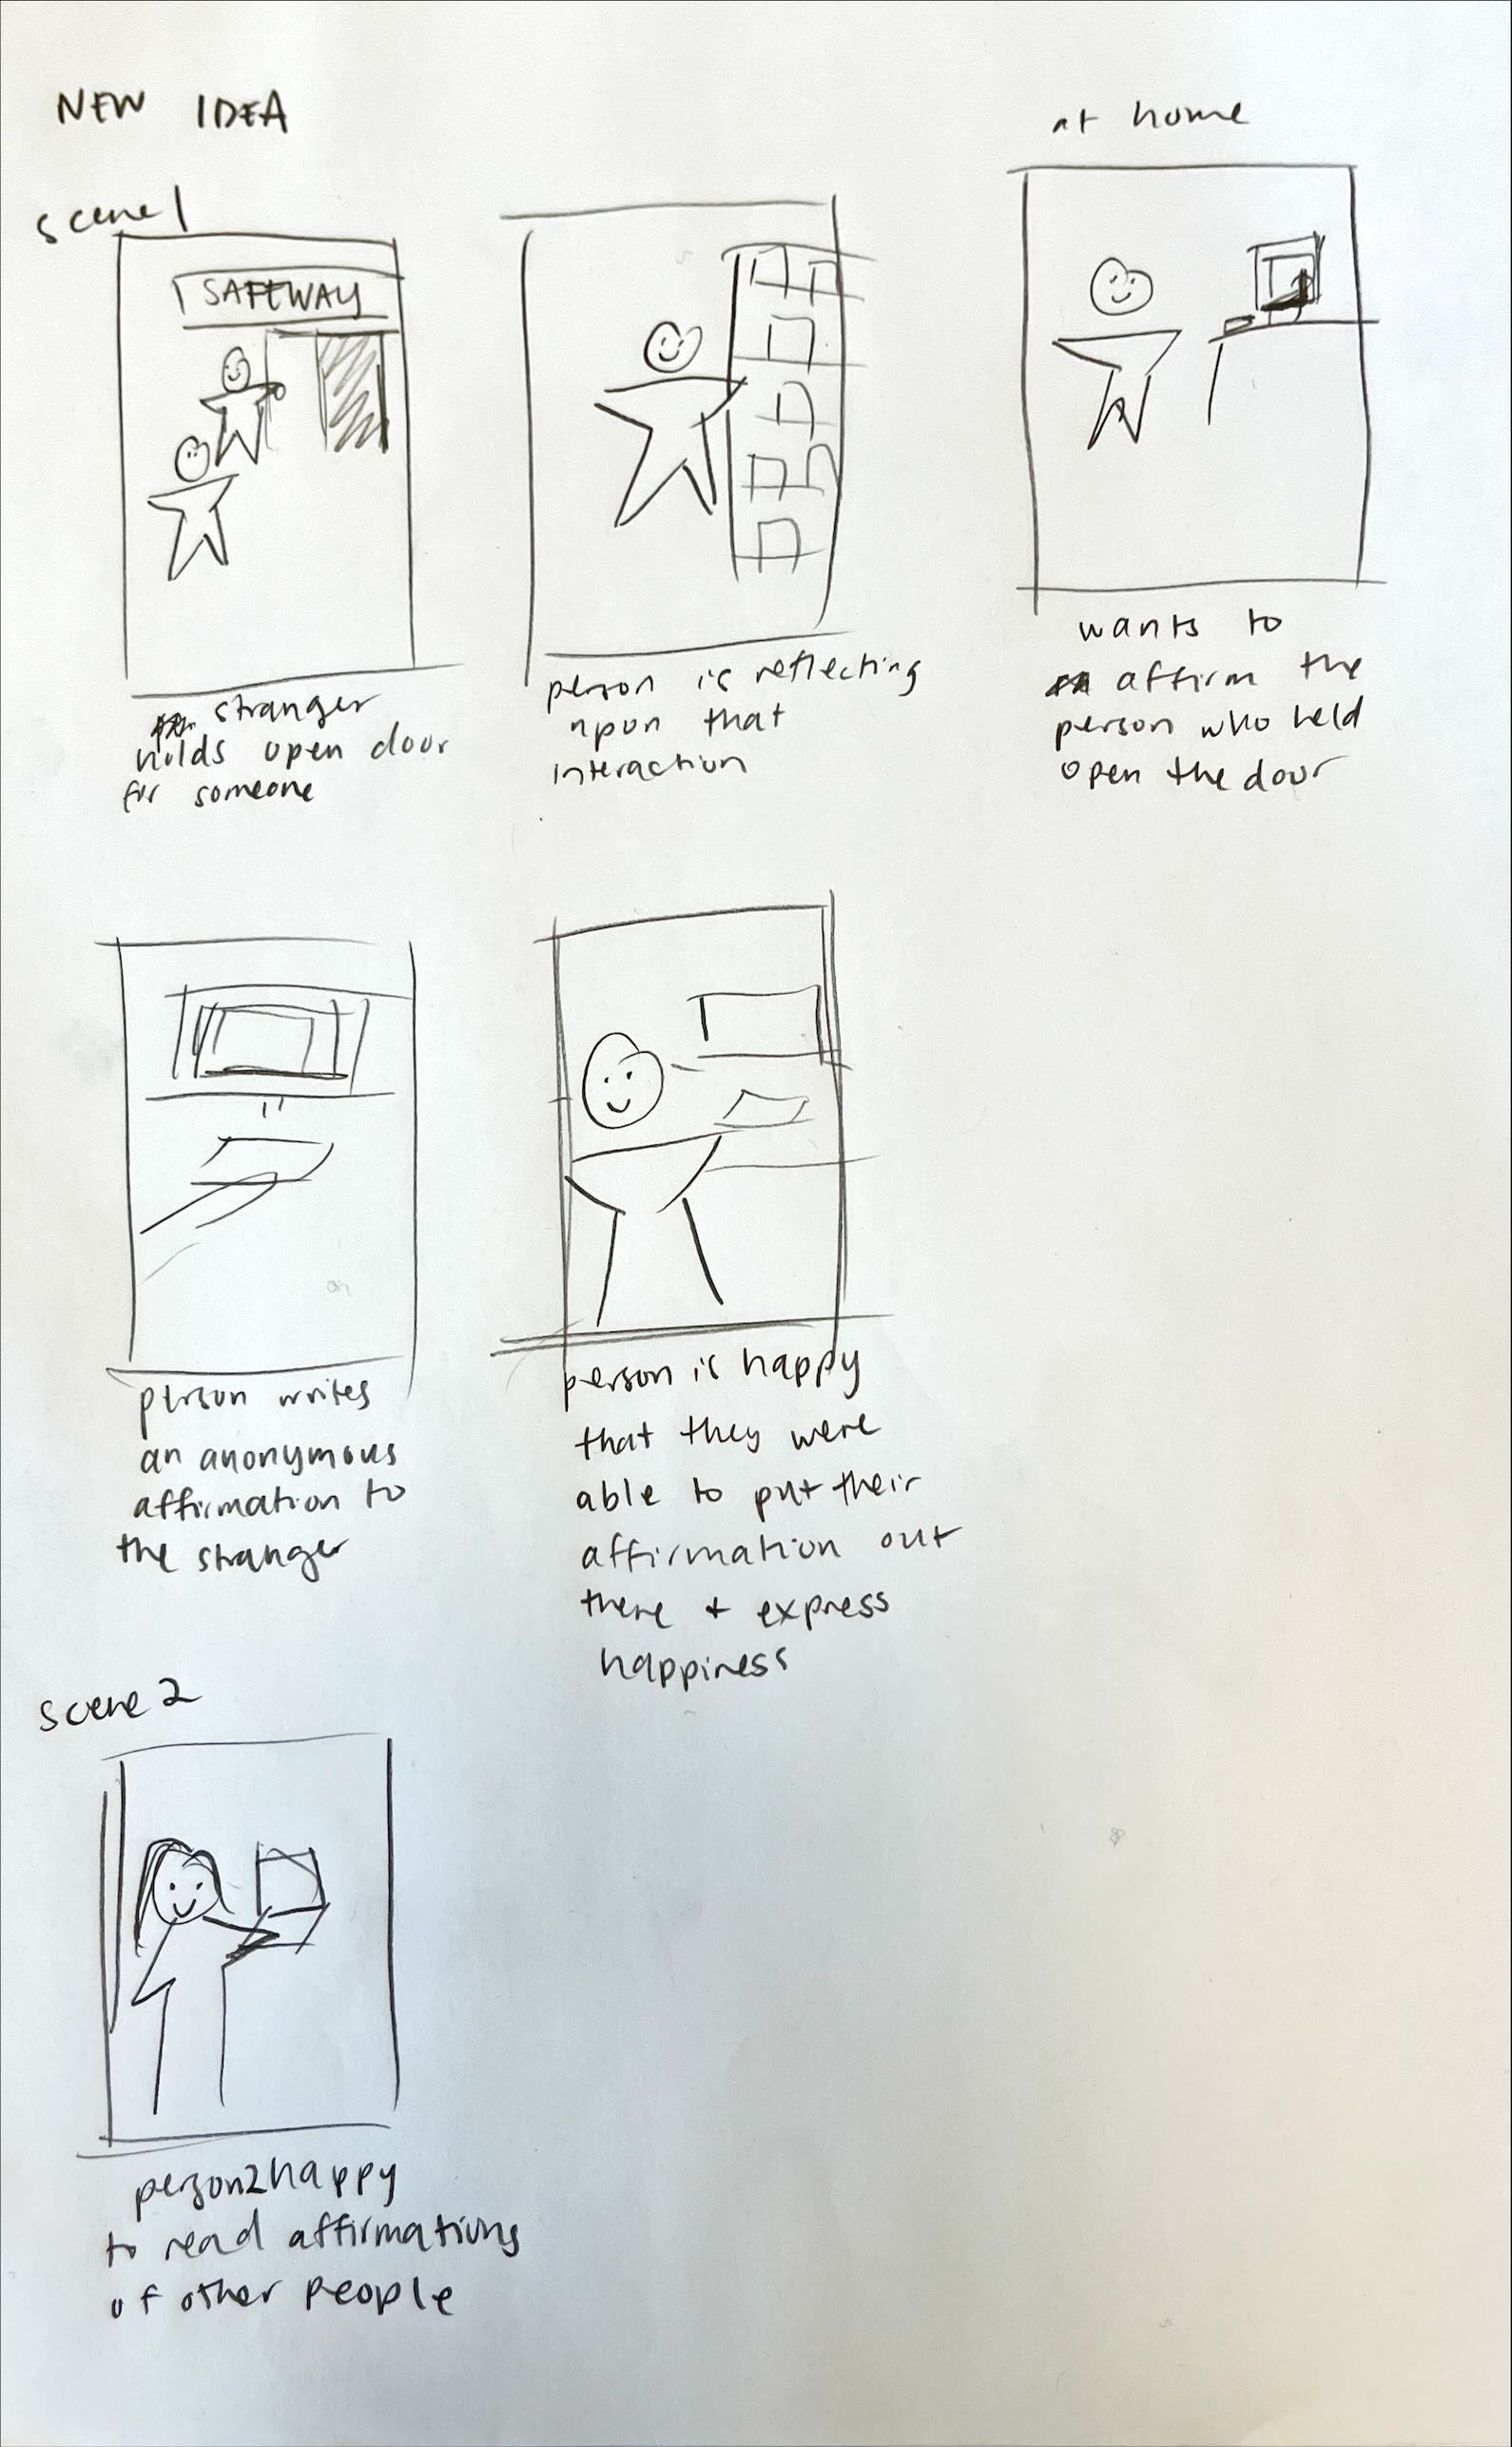 NEW IDEA
scene 1
SAFEWAY
stranger
holds open door
for someone
person is reflecting
upon that
interaction
at home
wants to
affirm the
person who held
open the door
person writes
an anonymous
affirmation to
the stranger
person is happy
that they were
able to put their
affirmation out
there + express
happiness
scene 2
person2 happy
to read affirmations
of other people